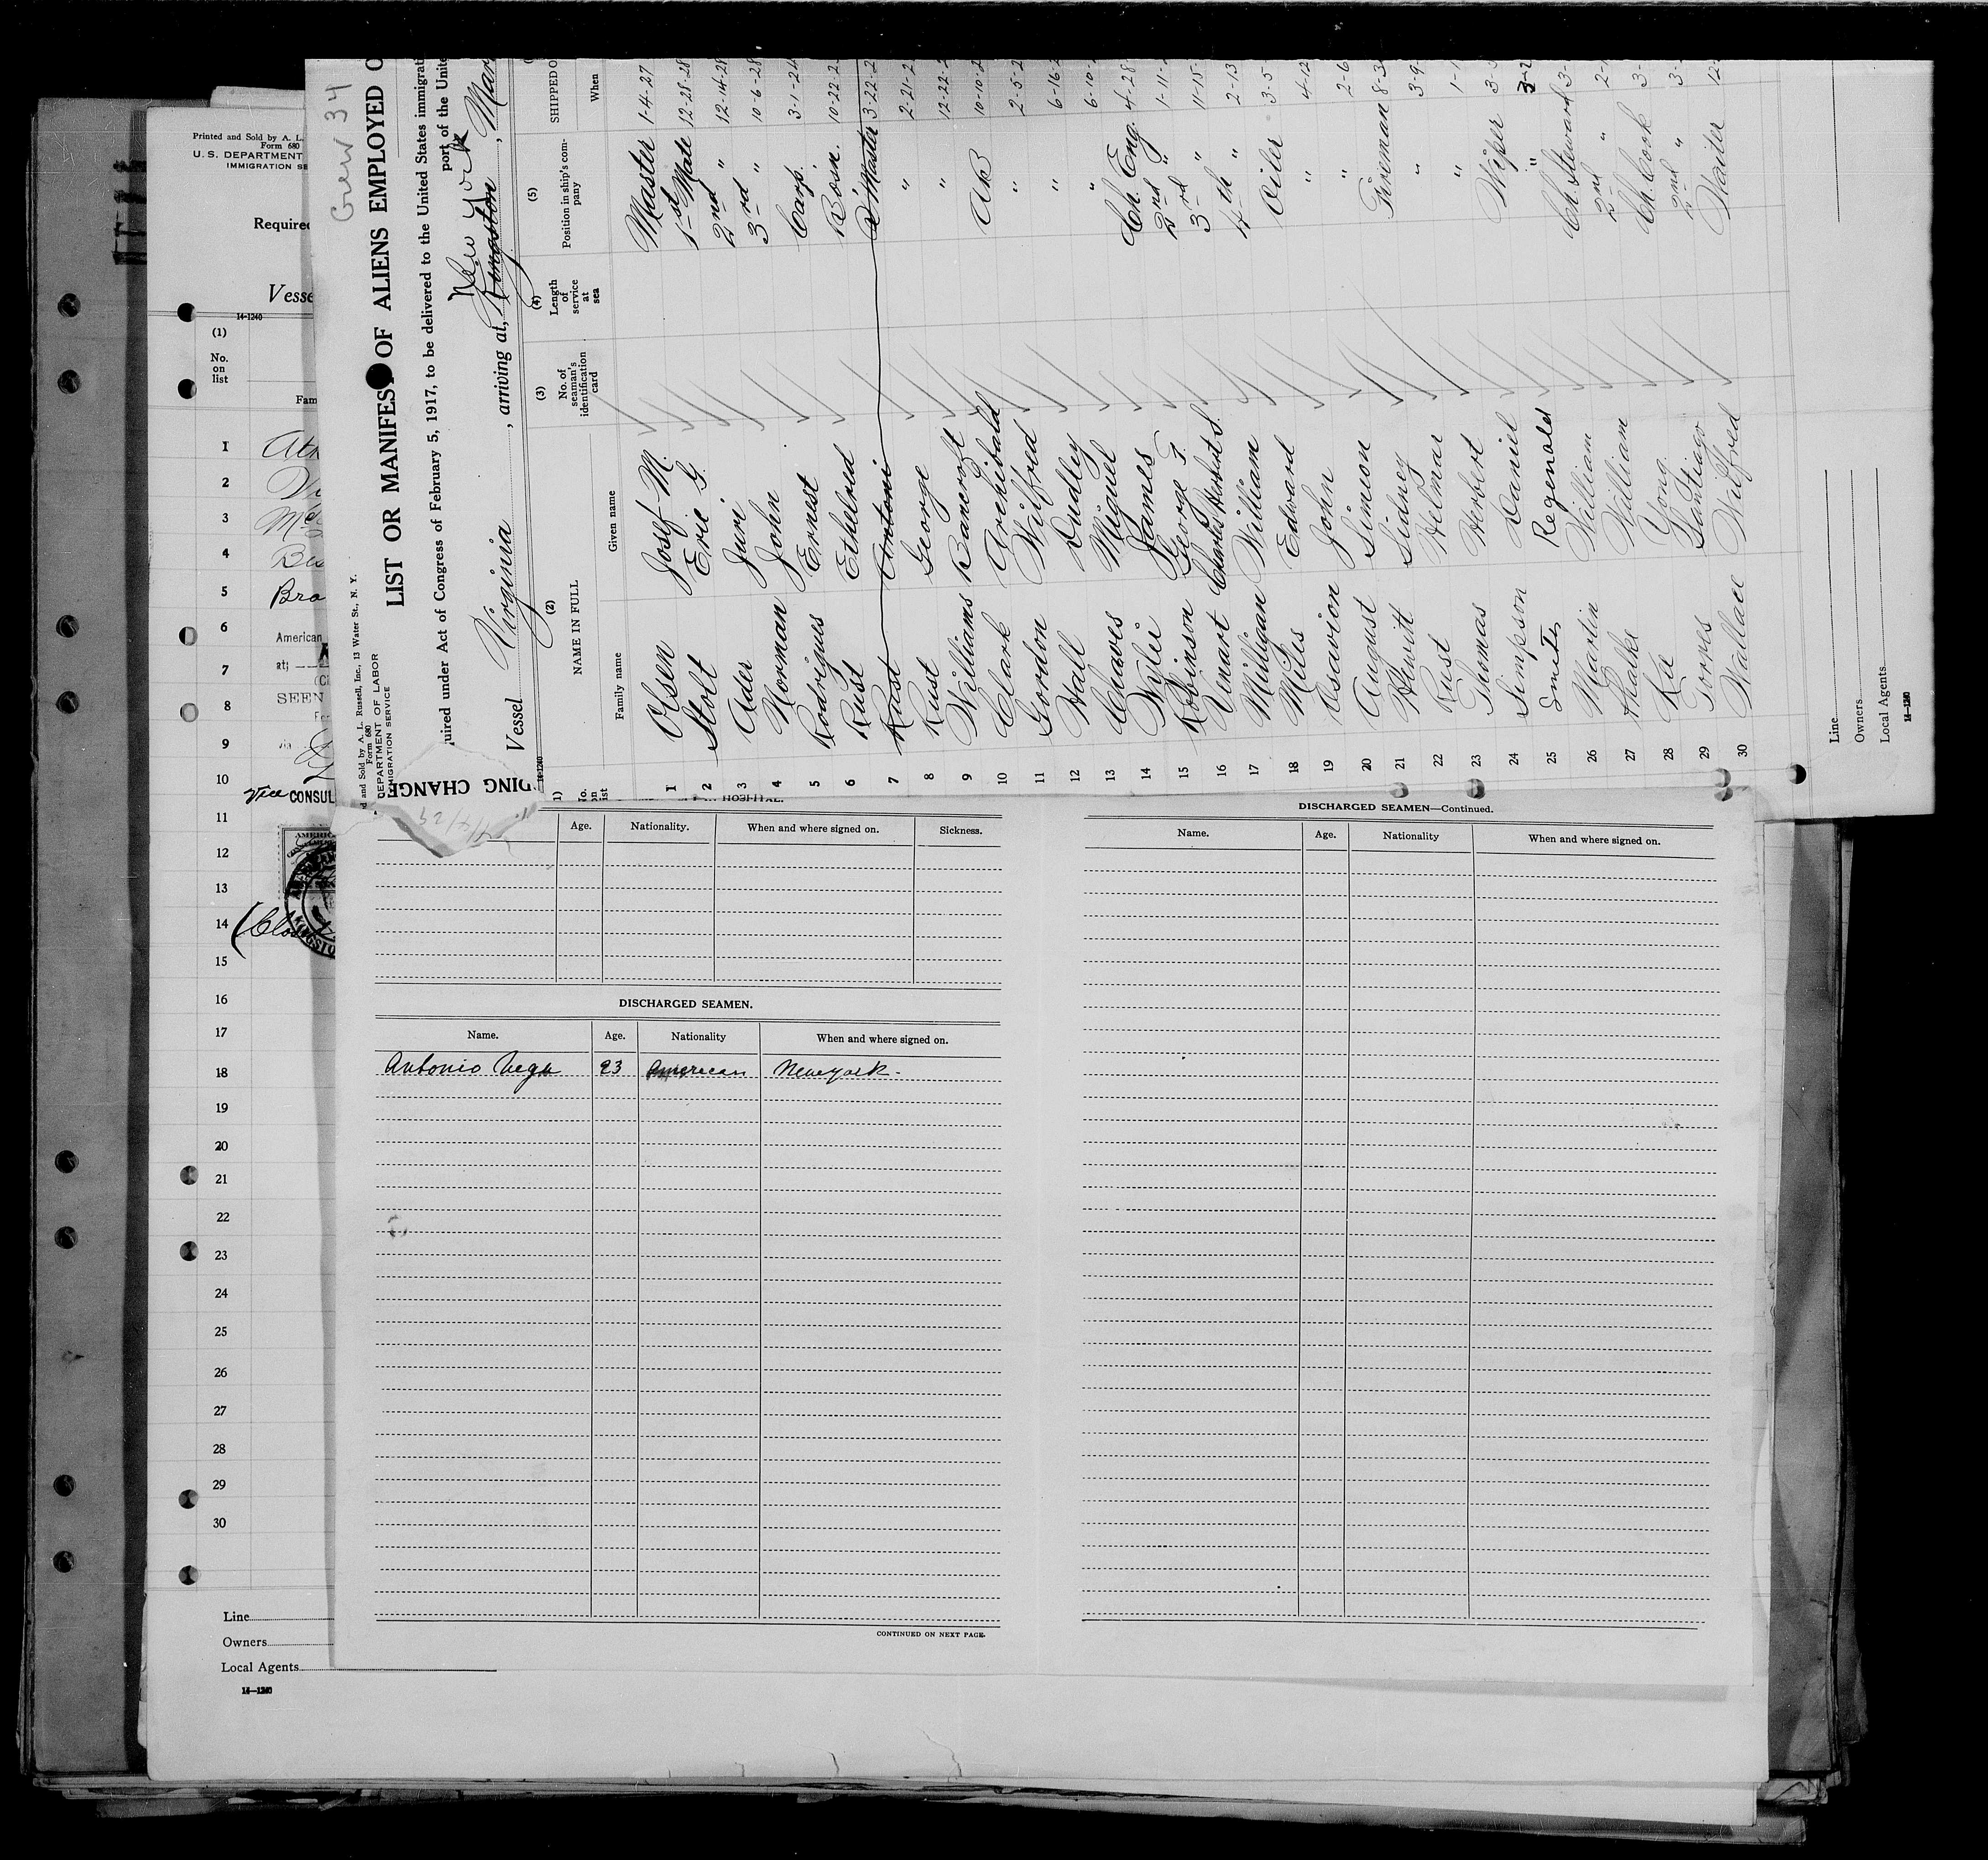 Printed and Sold by A. L.
Form 680
U. S. DEPARTMENT
IMMIGRATION SE
Required
Vesse
14-1240
(1)
No.
on
list
Fam
1
2
3
4
5 Bro
6 American
7 at;
8 SEEN
9
10
Vice CONSUL
11
12
13
14
15
16
17
18
19
20
21
22
23
24
25
26
27
28
29
30
Line
Owners
Local Agents
14-1240
Crew 34
d and Sold by A. L. Russell, Inc., 13 Water St., N. Y.
Form 680
DEPARTMENT OF LABOR
MIGRATION SERVICE
LIST OR MANIFES OF ALIENS EMPLOYED O
uired under Act of Congress of February 5, 1917, to be delivered to the United States immigrati
port of the Unite
Vessel Virginia, arriving at, Kingston New York, Mar
14-1240
(2) (3) (4) (5)
NAME IN FULL
Family name Given name
No. of seaman's identification card
Length of service at sea
Position in ship's company
SHIPPED O
When
1 Olsen Josef M. Master 1-4-27
2 Stolt Eric G. 1st Mate 12-28-28
3 Ader Juri 2nd " 12-14-28
4 Norman John 3rd " 10-6-28
5 Rodrigues Ernest Carp. 3-1-24
6 Rust Ethelred Bosn. 10-22-2
7 Rust Antoni Q Master 3-22-2
8 Rust George " 2-21-2
9 Williams Bancroft " 12-22-2
10 Clark Archibald AB 10-10-2
11 Gordon Wilfred " 2-5-2
12 Hall Dudley " 6-16-2
13 Chaves Miguel " 6-10-
14 Wylie James Ch. Eng. 4-28
15 Robinson George F. 2nd " 1-11-2
16 Venart Charles Herbert S. 3rd " 11-15-
17 Milligan William 4th " 2-13
18 Miles Edward Oiler 3-5-
19 Osavion John " 4-12
20 August Simion " 2-6
21 Hewitt Sidney Fireman 8-3
22 Rust Helmar " 3-9-
23 Thomas Herbert " 1-1
24 Simpson Daniel Wiper 3-3
25 Smith Regenald " 3-2
26 Martin William Ch. Steward 3-
27 Thalke William 2nd " 2-1
28 Kee Yong Ch. Cook 3-
29 Torres Santiago 2nd " 3-2
30 Wallace Wilfred Waiter 12-
Line
Owners
Local Agents
14-1240
DING CHANGE
Age. Nationality. When and where signed on. Sickness.
DISCHARGED SEAMEN.
Name. Age. Nationality When and where signed on.
Antonio Vega 23 American New york.
CONTINUED ON NEXT PAGE.
DISCHARGED SEAMEN—Continued.
Name. Age. Nationality When and where signed on.